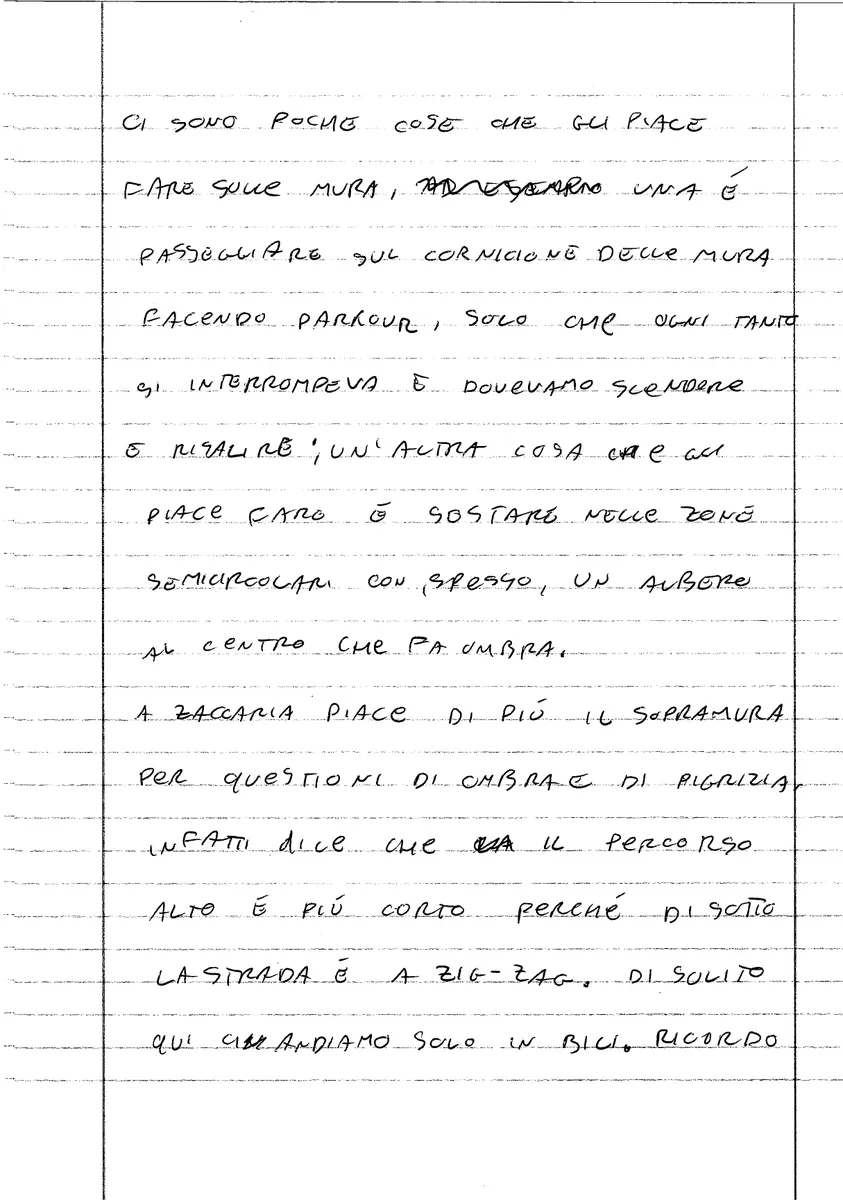 CI SONO POCHE COSE CHE GLI PIACE
FARE SULLE MURA, AD ESEMPIO UNA É
PASSEGGIARE SUL CORNICIONE DELLE MURA
FACENDO PARKOUR, SOLO CHE OGNI TANTO
SI INTERROMPEVA E DOVEVAMO SCENDERE
E RISALIRE; UN'ALTRA COSA CHE GLI
PIACE FARE É SOSTARE NELLE ZONE
SEMICIRCOLARI CON, SPESSO, UN ALBERO
AL CENTRO CHE FA OMBRA.
A ZACCARIA PIACE DI PIÚ IL SOPRAMURA
PER QUESTIONI DI OMBRA E DI PIGRIZIA,
INFATTI dice CHE IL PERCORSO
ALTO É PIÚ CORTO PERCHÉ DI SOTTO
LA STRADA É A ZIG-ZAG. DI SOLITO
QUI CI ANDIAMO SOLO IN BICI. RICORDO